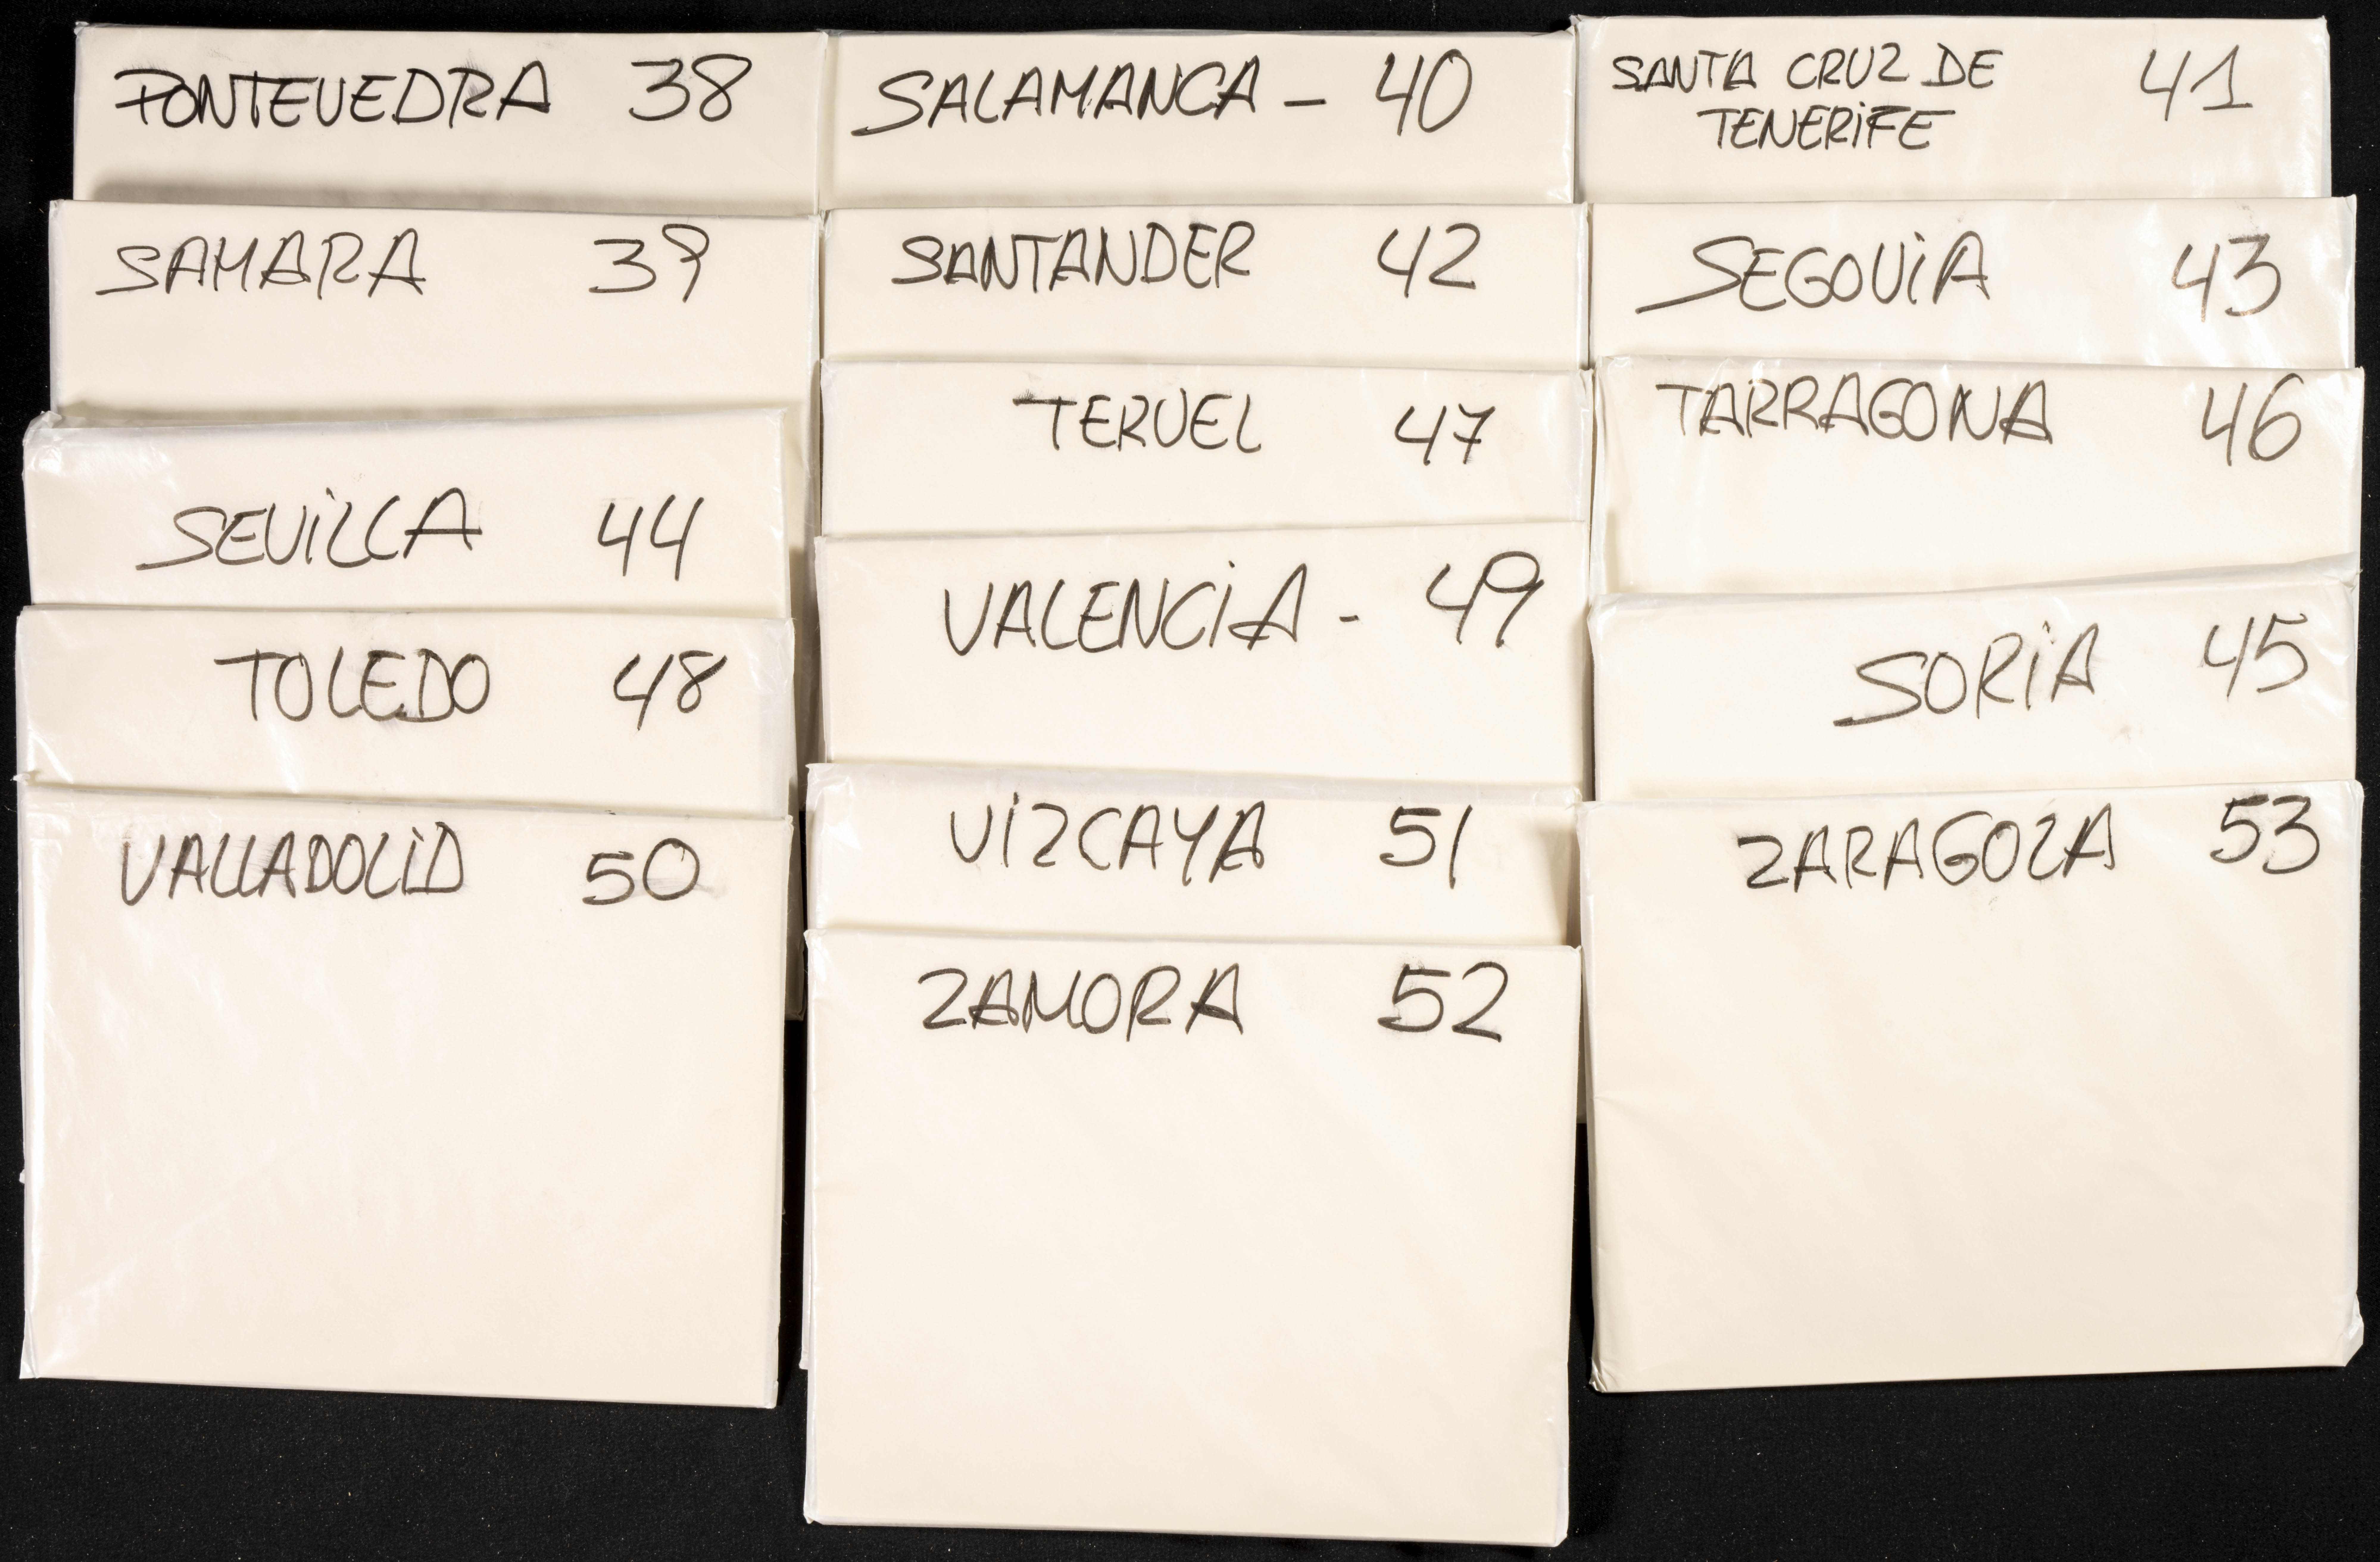 PONTEVEDRA 38
SAMARA 39
SEVILLA 44
TOLEDO 48
VALLADOLID 50
SALAMANCA - 40
SANTANDER 42
TERUEL 47
VALENCIA - 49
VIZCAYA 51
ZAMORA 52
SANTA CRUZ DE 41
TENERIFE
SEGOVIA 43
TARRAGONA 46
SORIA 45
ZARAGOZA 53